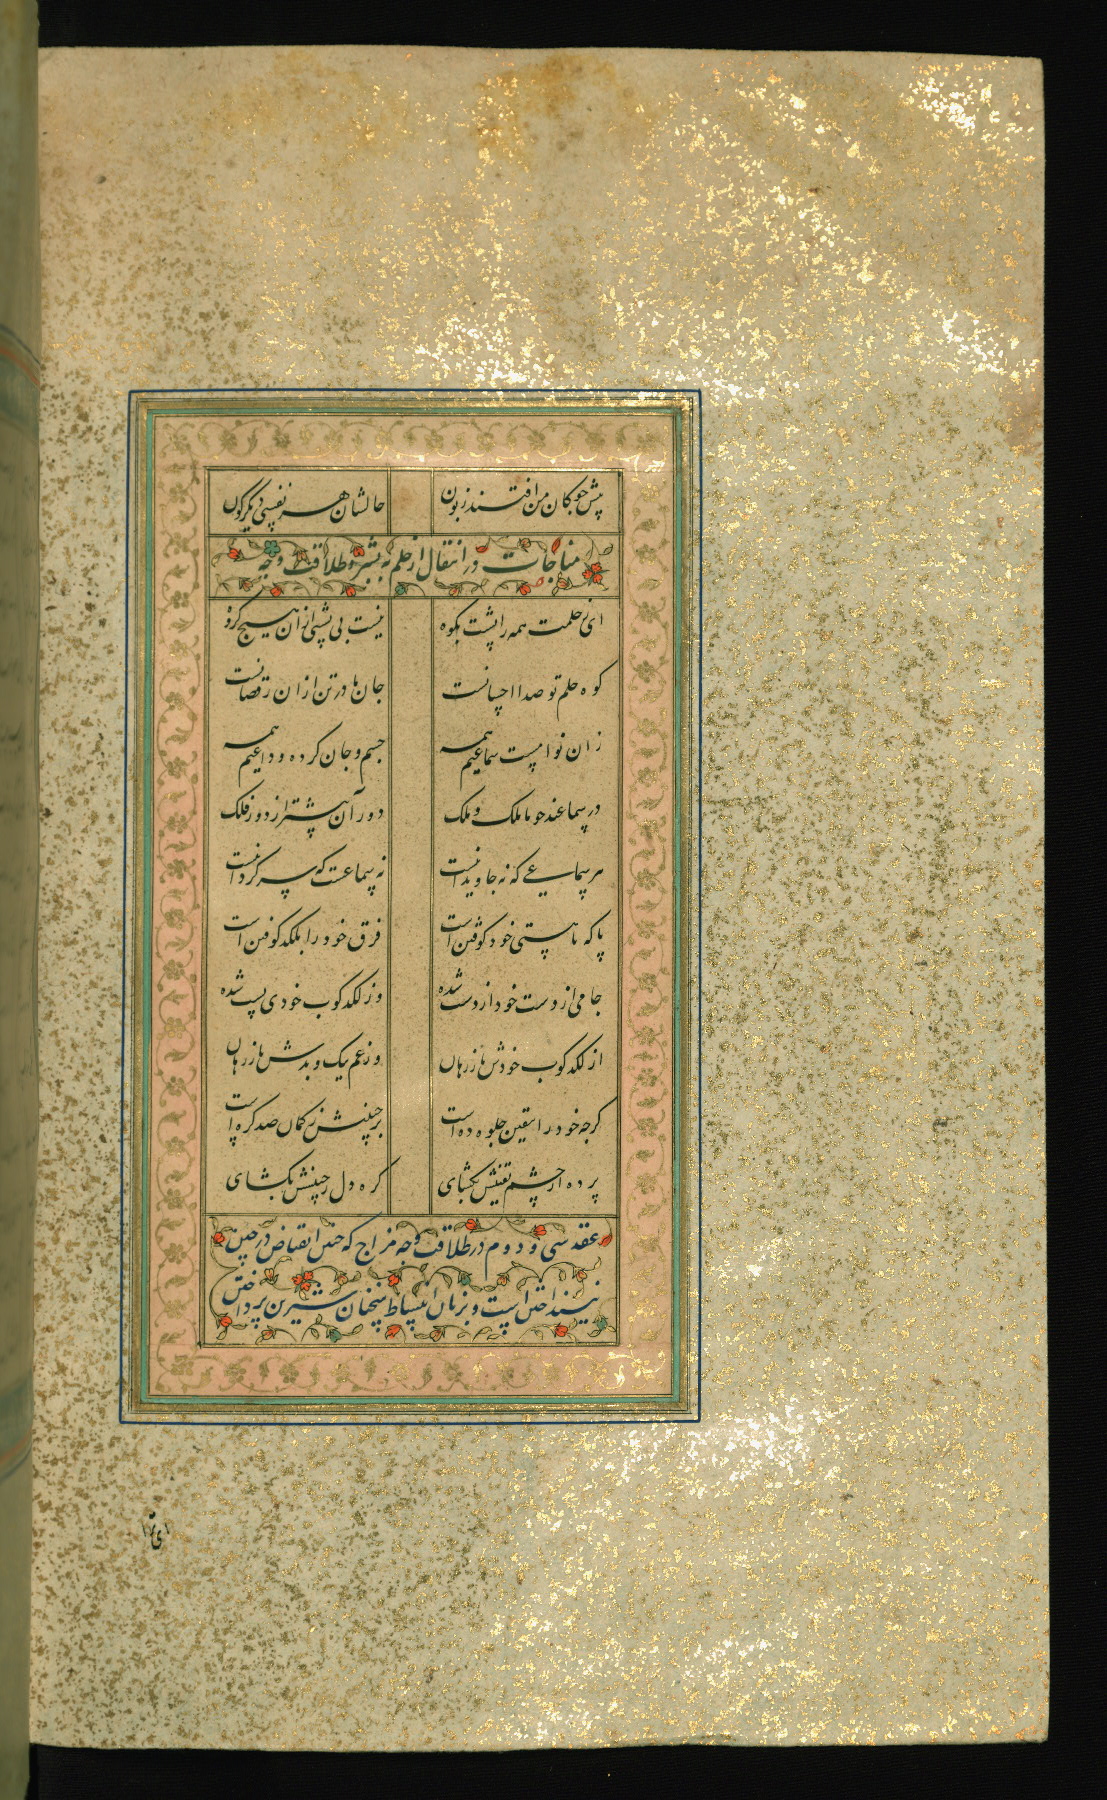 پیش چوکان من افتند زبون حالشان هر نفسی دیگرگون
مناجات در انتقال از حلم به بشر و طلاقت وجه
ای ز حلمت همه را پشت بکوه نیست بی پشتی ازان هیچ گروه
کوه حلم تو صدا احسانست جان ها در تن ازان رقصانست
زان نوا مست سماعیم همه جسم و جان کرده وداعیم همه
در سماعند چو ما ملک و ملک دور آن پیشتر از دور فلک
هر سماعی که نه جاویدانست نه سماعست که سرگردانست
پا که با هستی خود کوفتن است فرق خود را بلکد کوفتن است
جامی از دست خود از دست شده وز لکدکوب خودی پست شده
از لکدکوب خودش باز رهان وز غم نیک و بدش باز رهان
گرچه خود را بیقین جلوه ده است بر جبینش ز گمان صد گره است
پرده از چشم یقینش بگشای گره دل ز جبینش بگشای
عقد سی و دوم در طلاقت وجه و مزاح که چین انقباض در جبین
نینداختن است و بزبان انبساط سخنان شیرین پرداختن
ای تو